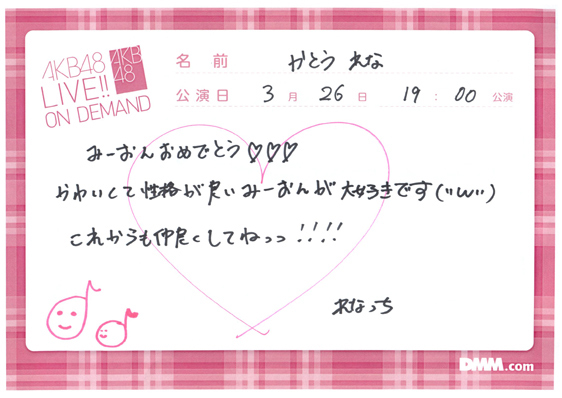 AKB48
LIVE!!
ON DEMAND
AKB
48
名前 かとう れな
公演日 3月26日 19:00公演
みーおんおめでとう♡♡♡
かわいくて性格が良いみーおんが大好きです("w")
これからも仲良くしてねっっ!!!!
れなっち
DMM.com